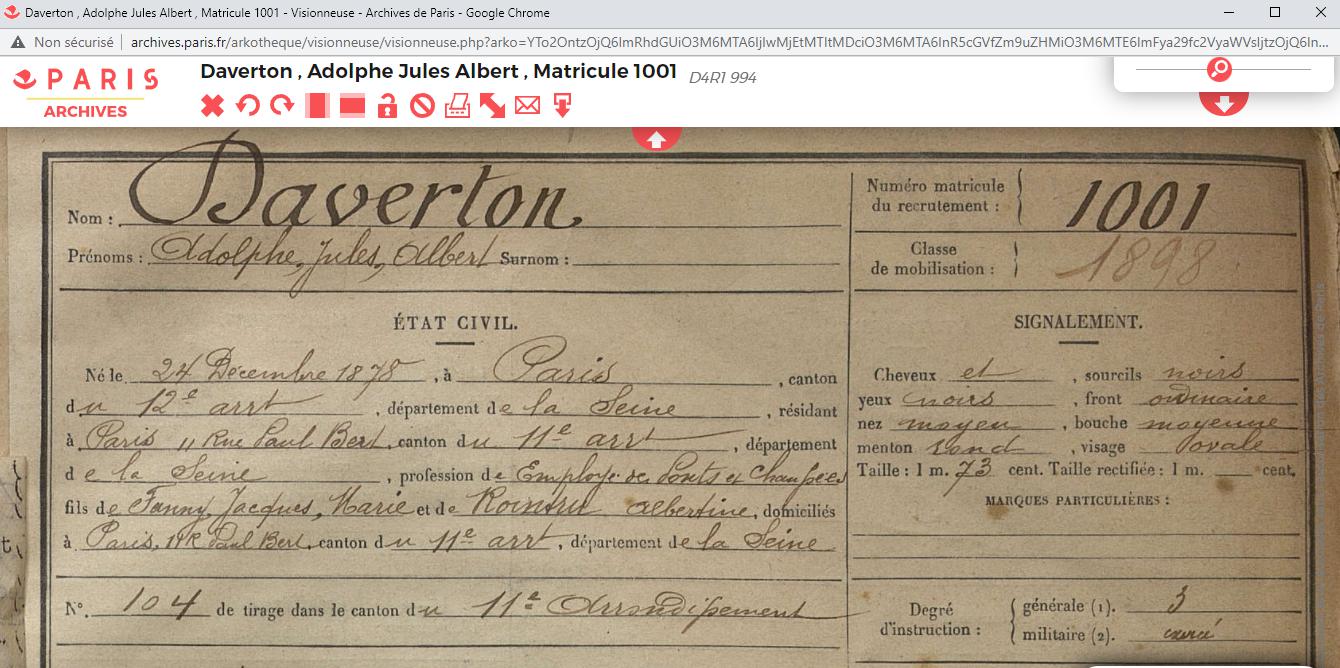 Daverton , Adolphe Jules Albert , Matricule 1001 - Visionneuse - Archives de Paris - Google Chrome
Non sécurisé | archives.paris.fr/arkotheque/visionneuse/visionneuse.php?arko=YTo2OntzOjQ6ImRhdGUiO3M6MTA6IjIwMjEtMTItMDciO3M6MTA6InR5cGVfZm9uZHMiO3M6MTE6ImFya29fc2VyaWVsIjtzOjQ6In...
PARIS
ARCHIVES
Daverton , Adolphe Jules Albert , Matricule 1001 D4R1 994
Nom : Daverton
Prénoms : Adolphe, Jules, Albert Surnom :
Numéro matricule du recrutement : 1001
Classe de mobilisation : 1898
ÉTAT CIVIL.
Né le 24 Décembre 1878, à Paris, canton
du 12e arrt, département de la Seine, résidant
à Paris 11 Rue Paul Bert, canton du 11e arrt, département
de la Seine, profession de Employé des Ponts et Chaussées
fils de Fanny, Jacques, Marie et de Albertine, domiciliés
à Paris, 11 R Paul Bert, canton du 11e arrt, département de la Seine
N°. 104 de tirage dans le canton du 11e Arrondissement
SIGNALEMENT.
Cheveux et, sourcils noirs
yeux noirs, front ordinaire
nez moyen, bouche moyenne
menton rond, visage ovale
Taille : 1 m. 73 cent. Taille rectifiée : 1 m. cent.
MARQUES PARTICULIÈRES :
Degré d'instruction :
générale (1). 3
militaire (2). exercé